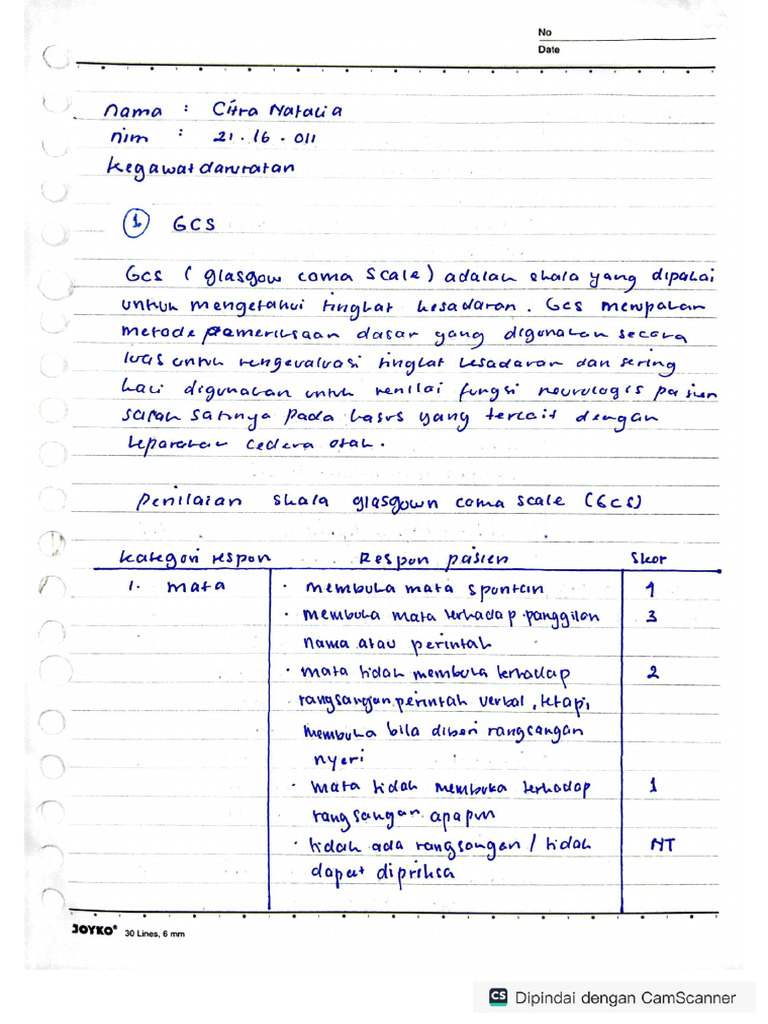 No
Date
nama : Citra Natalia
nim : 21.16.011
kegawatdaruratan
1 GCS
GCS (glasgow coma scale) adalah skala yang dipakai
untuk mengetahui tingkat kesadaran. GCS merupakan
metode pemeriksaan dasar yang digunakan secara
luas untuk mengevaluasi tingkat kesadaran dan sering
kali digunakan untuk menilai fungsi neurologis pasien
salah satunya pada kasus yang terkait dengan
keparahan cedera otak.
Penilaian skala glasgown coma scale (GCS)
kategori respon Respon pasien Skor
1. mata • membuka mata spontan 4
• membuka mata terhadap panggilan 3
nama atau perintah
• mata tidak membuka terhadap 2
rangsangan perintah verbal, tetapi
membuka bila diberi rangsangan
nyeri
• mata tidak membuka terhadap 1
rangsangan apapun
• tidak ada rangsangan / tidak NT
dapat dipriksa
JOYKO® 30 Lines, 6 mm
CS Dipindai dengan CamScanner